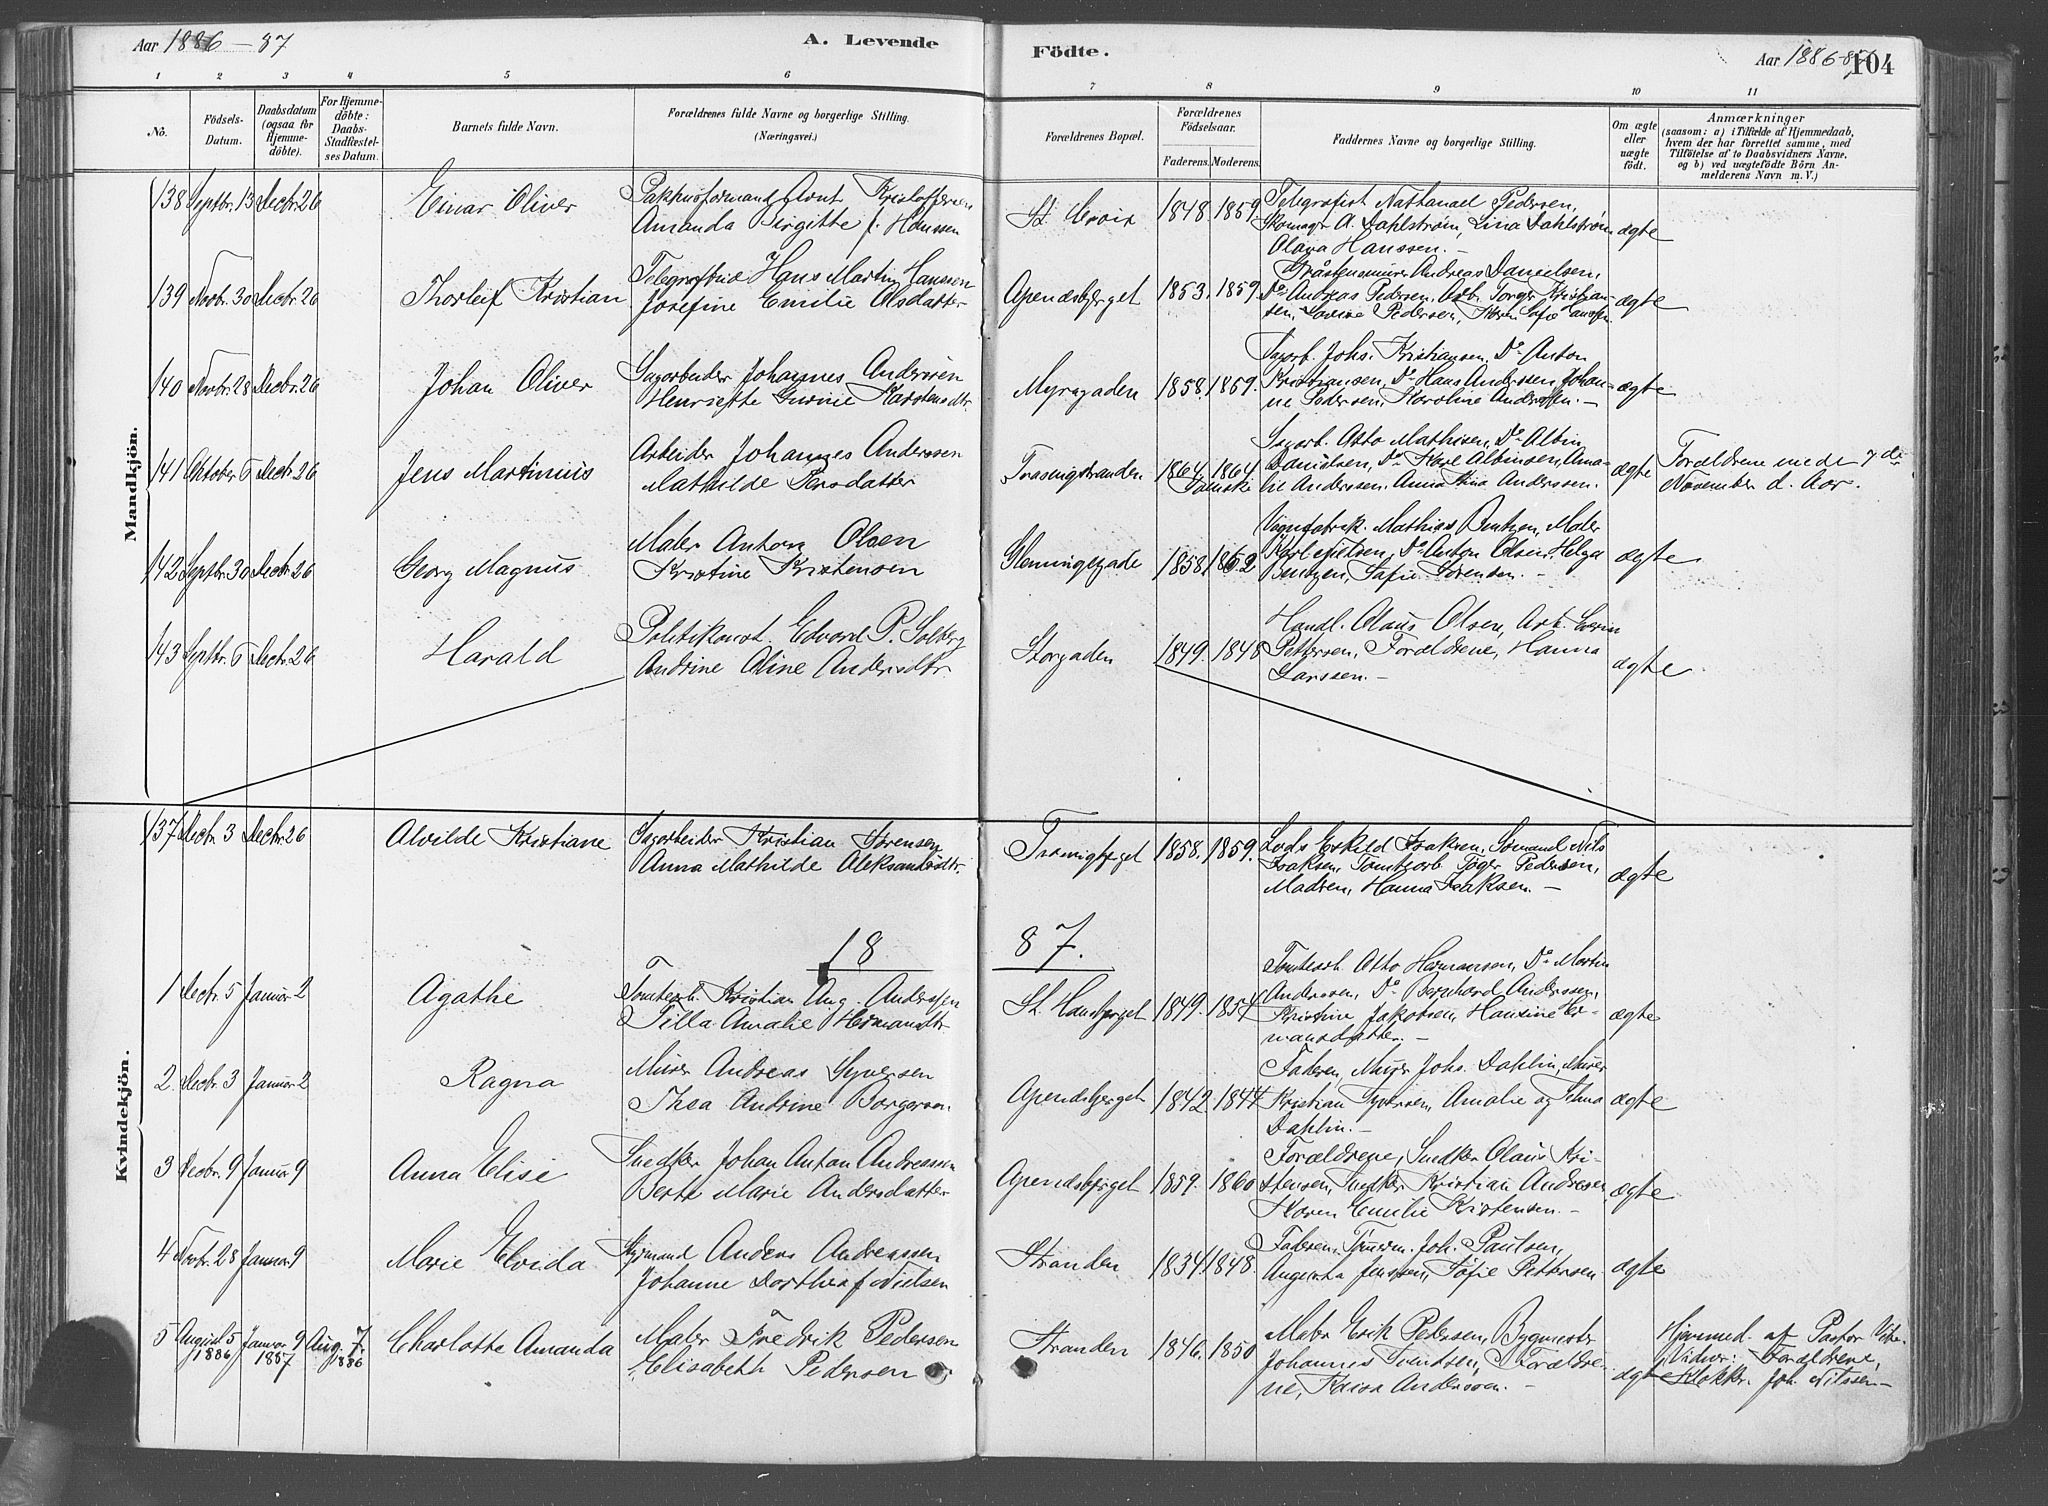 Aar 1886-87
A. Levende
Födte.
Aar 1886-87
104
1 2 3 4 5 6 7 8 9 10 11
No.
Födsels-
Datum.
Daabsdatum
(ogsaa for
Hjemme-
döbte).
For Hjemme-
döbte:
Daabs-
Stadfæstel-
ses Datum.
Barnets fulde Navn.
Forældrenes fulde Navne og borgerlige Stilling.
(Næringsvei.)
Forældrenes Bopæl.
Forældrenes
Födselsaar.
Faderens. Moderens.
Faddernes Navne og borgerlige Stilling.
Om ægte
eller
uægte
födt.
Anmærkninger
(saasom: a) i Tilfælde af Hjemmedaab,
hvem der har forrettet samme, med
Tilföielse af to Daabsvidners Navne,
og b) ved uægtefödte Börn An-
melderens Navn m. V.)
Mandkjön.
138 Septbr. 13 Decbr. 26 Einar Oliver
Pakhusformand Arnt Kristoffersen
Amanda Birgitte f. Hanssen
St. Croix 1848. 1859.
Telegrafist Nathanael Pedersen,
Skomagr A. Dahlstrøm, Lina Dahlstrøm
Olava Hanssen. —
ægte
139 Novbr. 30 Decbr. 26 Thorleif Kristian
Hans Martin Hanssen
Josefine Emilie Olsdatter
Apendsbjerget 1853. 1859.
Gråstensmurer Andreas Danielsen,
Do Andreas Pedersen, Arb. Torger Kristian-
sen, Lovise Pedersen, Karen Sofie
ægte
140 Novbr. 28 Decbr. 26 Johan Oliver
Sagarbeider Johannes Anderssen
Henriette Gurine Karstensdtr.
Myragaden 1858. 1859.
Sagarb. Johs. Kristiansen, Do Anton
Kristiansen, Do Hans Anderssen, Johan-
ne Pedersen, Karoline Anderssen. —
ægte
141 Oktober 6 Decbr. 26 Jens Martinius
Arbeider Johannes Anderssen
Mathilde Larsdatter
Trosvigstranden 1864 1864
Sagarb. Otto Mathisen, Do Albin
Danielsen, Do Karl Albinsen, Ama-
lie Anderssen, Anna Stina Anderssen.
ægte
Forældrene 7de
November d. Aar.
142 Septbr. 30 Decbr. 26 Georg Magnus
Maler Anton Olsen
Kristine Kristensen
Glemmingegade 1858. 1862
Vognfabrik. Mathias Bentzen, Maler
Karl Nielsen, Do Anton Olsen, Helga
Bentzen, Sofie Sørensen. —
ægte
143 Septbr. 6 Decbr. 26 Harald
Politikonst. Edvard P. Solberg
Andrine Oline Andersdtr.
Storgaden 1849. 1848
Handl. Olaus Olsen, Arb. Everin
Pettersen, Forældrene, Hanna
Larssen. —
ægte
Kvindekjön.
137 Decbr. 3 Decbr. 26 Alvilde Kristiane
Sagarbeider Kristian Sørensen
Anna Mathilde Aleksandersdtr.
1858. 1859.
Lods Eskild Isaksen, Sømand Nils
Isaksen, Tomtearb. Tøger Pedersen,
Madsen, Hanna Isaksen. —
ægte
1887.
1 Decbr. 5 Januar 2 Agathe
Tomtearb. Kristian Aug. Anderssen
Tilla Amalie Hermansdtr.
St. Hansfjerget 1849. 1854
Tomtearb. Otto Hermansen, Do Martin
Anderssen, Do Bernhard Anderssen,
Kristine Jakobsen, Hansine Her-
mansdatter. —
ægte
2. Decbr. 3 Januar 2 Ragna
Murer Andreas Syversen
Thea Andrine Borgersen
Apendsbjerget 1842 1844
Faderen, Murer Johs. Dahlin, Murer
Kristian Syversen, Amalie og Selma
Dahlin. —
ægte
3 Decbr. 9 Januar 9 Anna Elise
Snedker Johan Anton Andreassen
Berte Marie Andersdatter
Apendsbjerget 1859. 1860
Forældrene, Snedker Olaus Kri-
stensen, Snedker Kristian Andresen
Karen Emilie Kristensen. —
ægte
4 Novbr. 28 Januar 9 Marie Elvida
Styrmand Anders Andreassen
Johanne Dorthea f. Nielsen
Stranden 1834. 1848.
Faderen, Joh. Paulsen,
Jenssen, Sofie Pettersen
ægte
5 August 5 1886 Januar 9 1887 Aug. 7. 1886 Charlotte Amanda
Maler Fredrik Pedersen
Elisabeth Pedersen
Stranden 1846. 1850
Maler Erik Pedersen, Bygmester
Johannes Svendsen, Forældre-
ne, Kaisa Anderssen. —
ægte
Hjemmed. af Pastor
Vidner: Forældrene,
Klokker Joh. Nilssen —